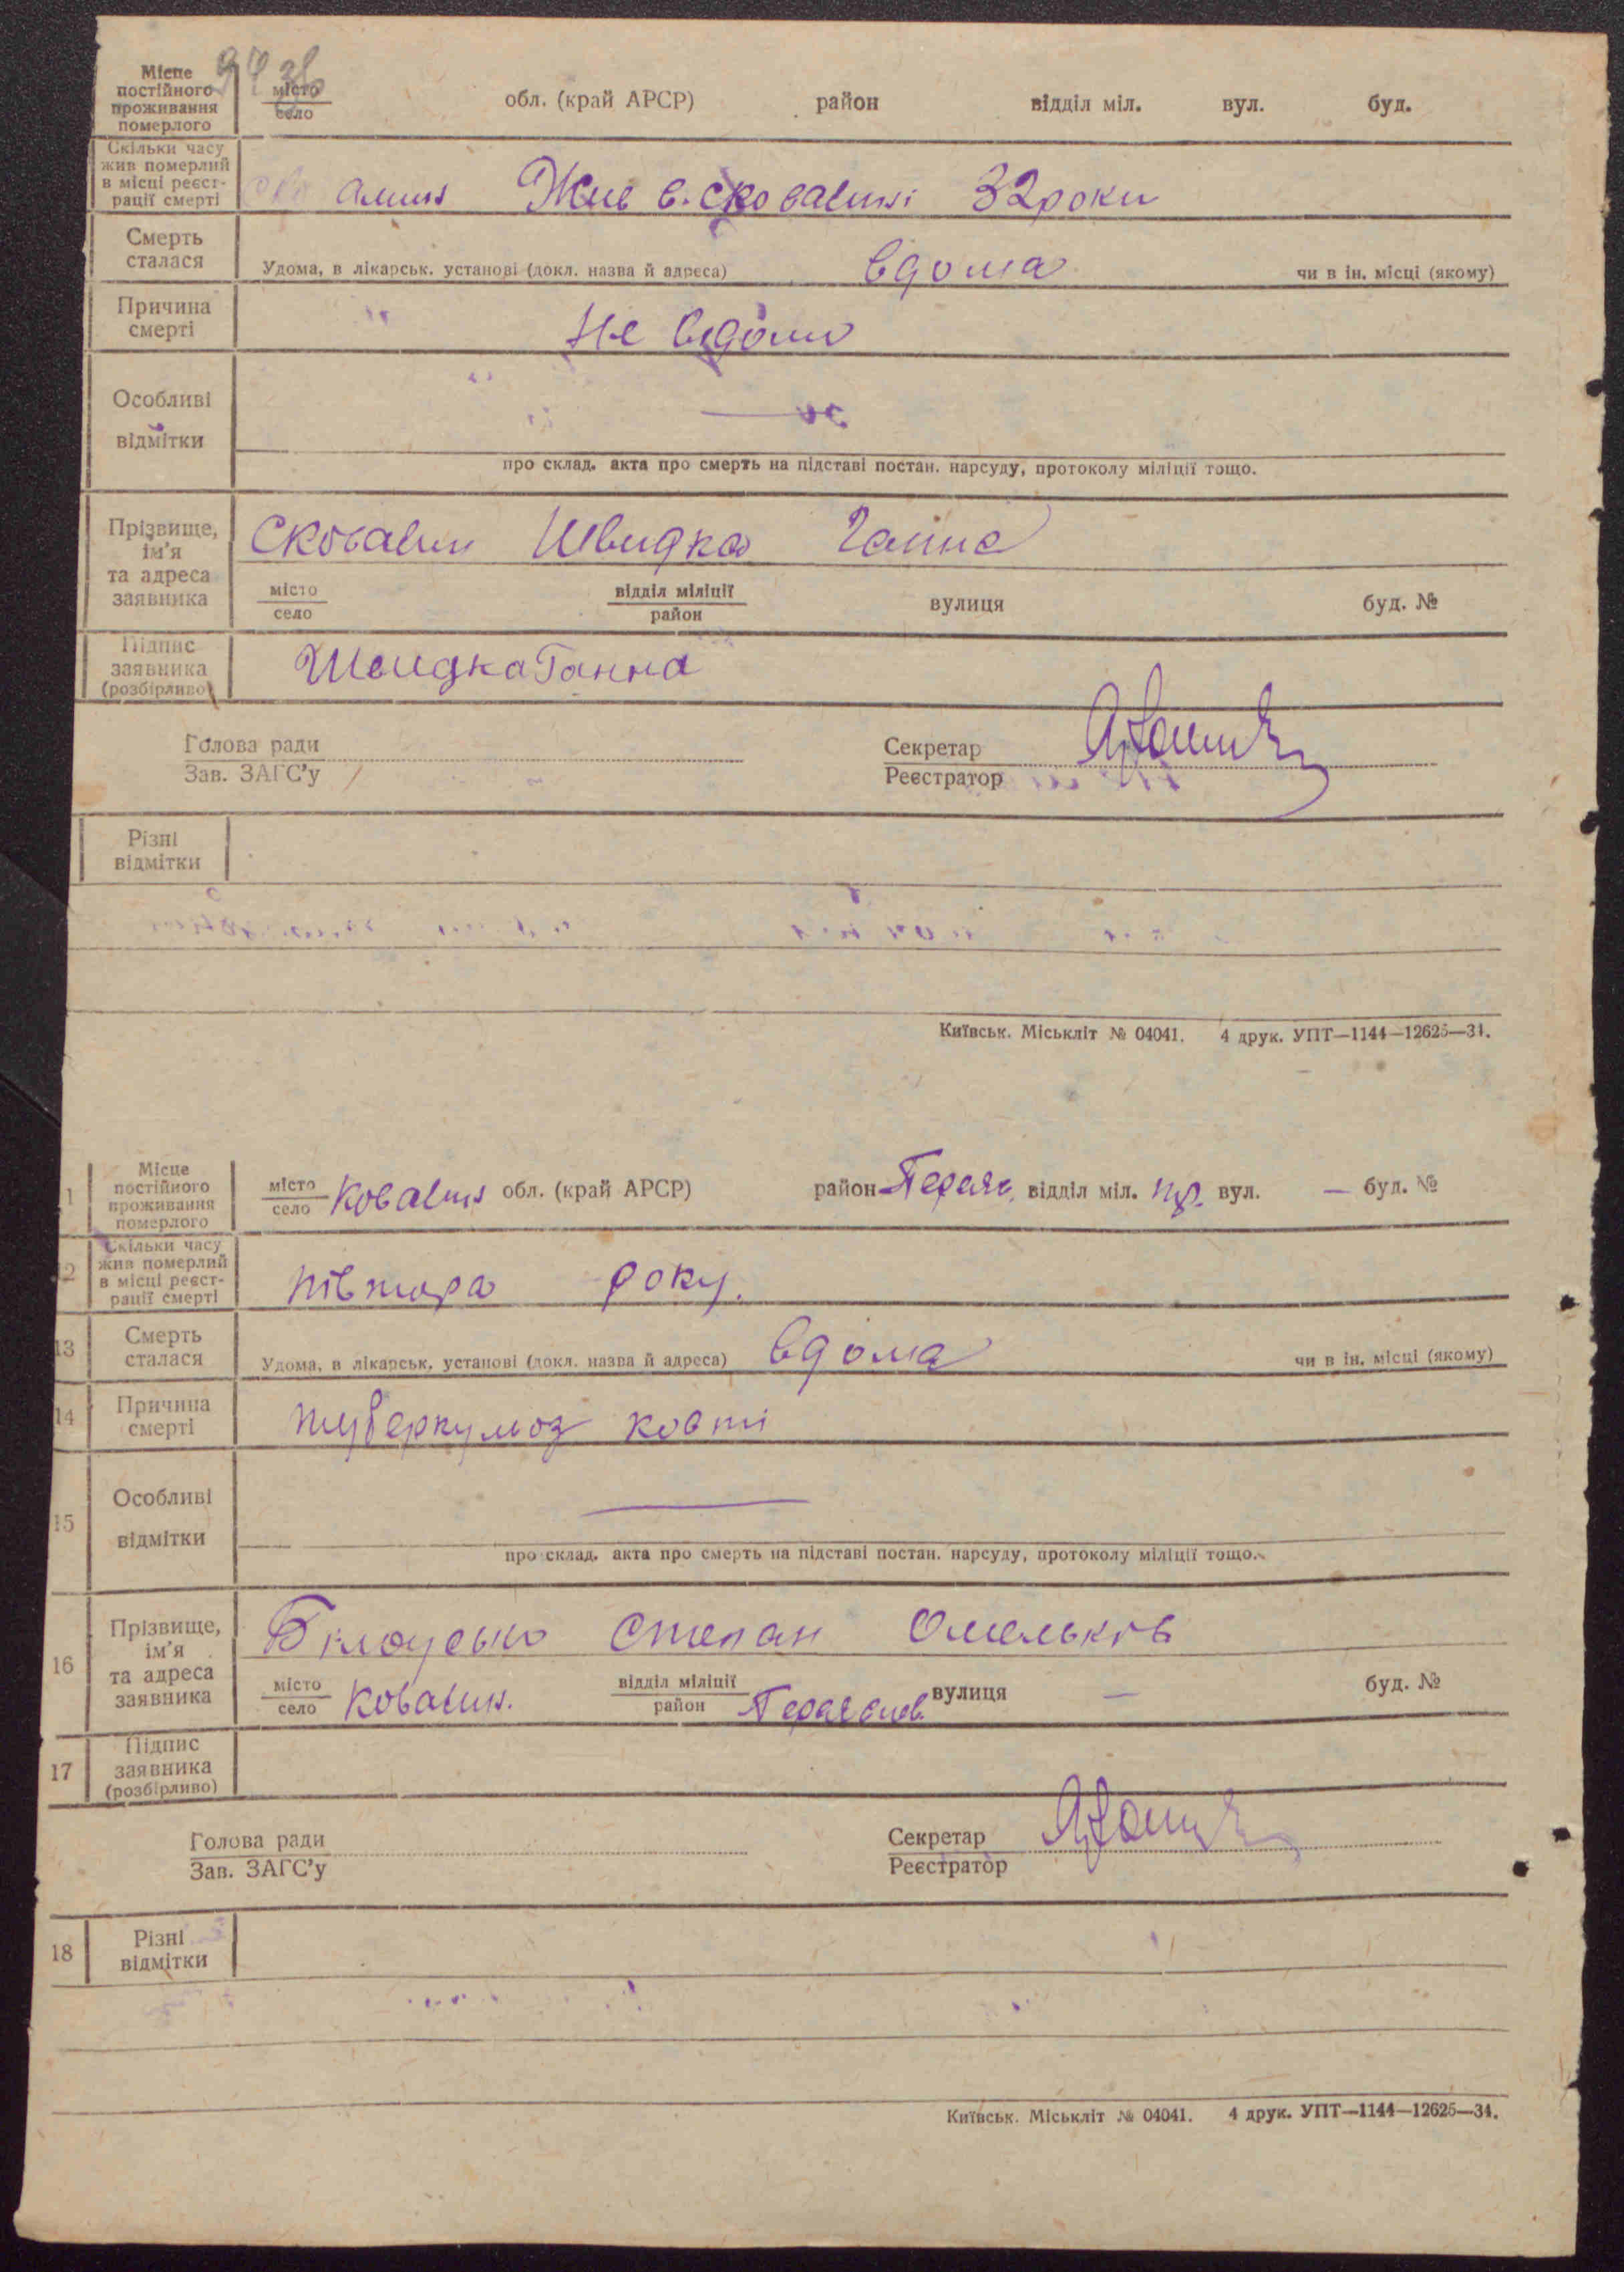 94 36
Місце постійного проживання померлого
місто
село
обл. (край АРСР) район відділ міл. вул. буд.
Скільки часу жив померлий в місці реєстрації смерті
Жив в. Сковалині 32 роки
Смерть сталася
Удома, в лікарськ. установі (докл. назва й адреса) вдома чи в ін. місці (якому)
Причина смерті
Не відомо
Особливі відмітки
—
про склад. акта про смерть на підставі постан. нарсуду, протоколу міліції тощо.
Прізвище, ім'я та адреса заявника
Швидка Ганна
місто
село
відділ міліції
район
вулиця буд. №
Підпис заявника (розбірливо)
Швидка Ганна
Голова ради
Зав. ЗАГС'у
Секретар
Реєстратор
Різні відмітки
Київськ. Міськліт № 04041. 4 друк. УПТ—1144—12625—34.
1 Місце постійного проживання померлого
місто
село
Ковалин обл. (край АРСР) район Переяс. відділ міл. вул. — буд. №
2 Скільки часу жив померлий в місці реєст-рації смерті
півтора року.
13 Смерть сталася
Удома, в лікарськ. установі (докл. назва й адреса) вдома чи в ін. місці (якому)
14 Причина смерті
туберкульоз
15 Особливі відмітки
—
про склад. акта про смерть на підставі постан. нарсуду, протоколу міліції тощо.
16 Прізвище, ім'я та адреса заявника
Білоусько Степан Омельків
місто
село
Ковалин.
відділ міліції
район
Переяслов. вулиця — буд. №
17 Підпис заявника (розбірливо)
Голова ради
Зав. ЗАГС'у
Секретар
Реєстратор
18 Різні відмітки
Київськ. Міськліт № 04041. 4 друк. УПТ—1144—12625—34.